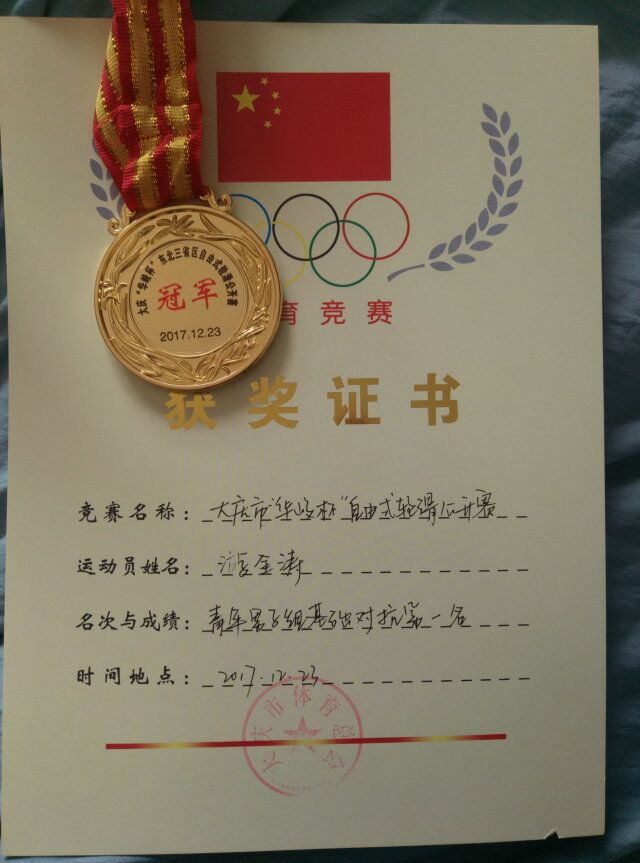 大庆“华峻杯”东北三省区自由式轮滑公开赛
冠军
2017.12.23
育竞赛
获奖证书
竞赛名称：大庆市“华峻杯”自由式轮滑公开赛
运动员姓名：金涛
名次与成绩：青年男子组基础对抗第一名
时间地点：2017.12.23
大庆市体育总会